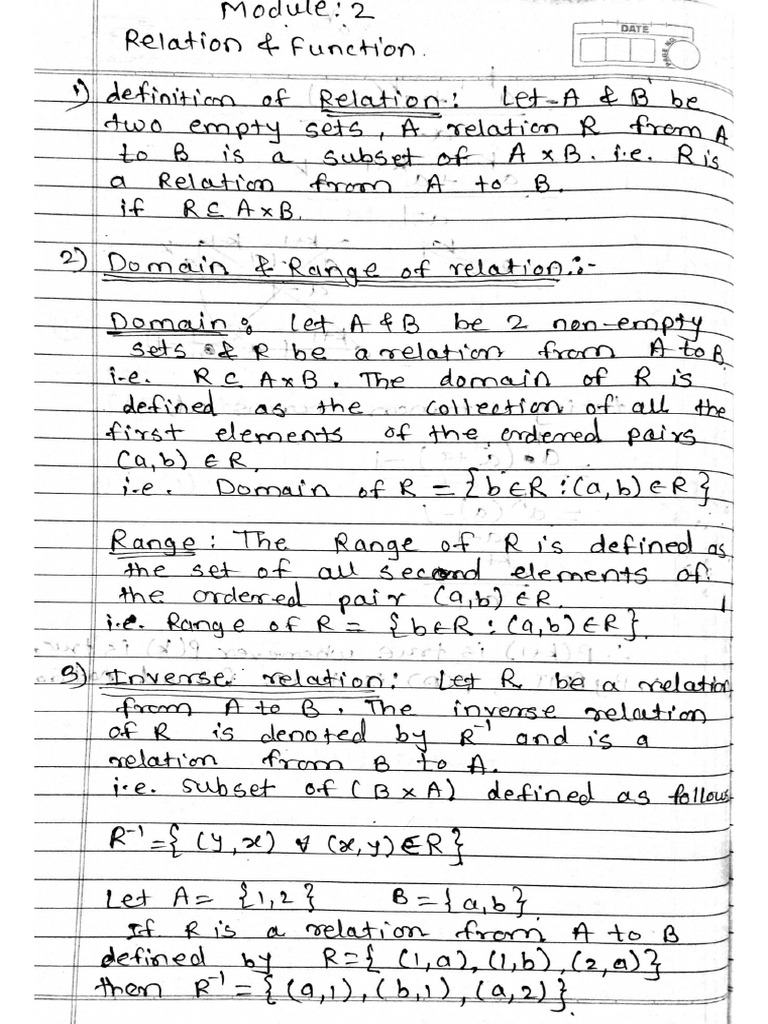 Module: 2
Relation & Function.
DATE
PAGE NO.
1) definition of Relation: Let A & B be
two empty sets, A relation R from A
to B is a subset of A x B. i.e. R is
a Relation from A to B.
if R ⊆ A x B.
2) Domain & Range of relation:-
Domain: Let A & B be 2 non-empty
sets & R be a relation from A to B
i.e. R ⊆ A x B. The domain of R is
defined as the collection of all the
first elements of the ordered pairs
(a, b) ∈ R.
i.e. Domain of R = {b ∈ R : (a, b) ∈ R}
Range: The Range of R is defined as
the set of all second elements of
the ordered pair (a, b) ∈ R.
i.e. Range of R = {b ∈ R : (a, b) ∈ R}.
3) Inverse relation: Let R be a relation
from A to B. The inverse relation
of R is denoted by R⁻¹ and is a
relation from B to A.
i.e. subset of (B x A) defined as follows
R⁻¹ = { (y, x) ∀ (x, y) ∈ R }
Let A = {1, 2} B = {a, b}
If R is a relation from A to B
defined by R = { (1, a), (1, b), (2, a) }
then R⁻¹ = { (a, 1), (b, 1), (a, 2) }.